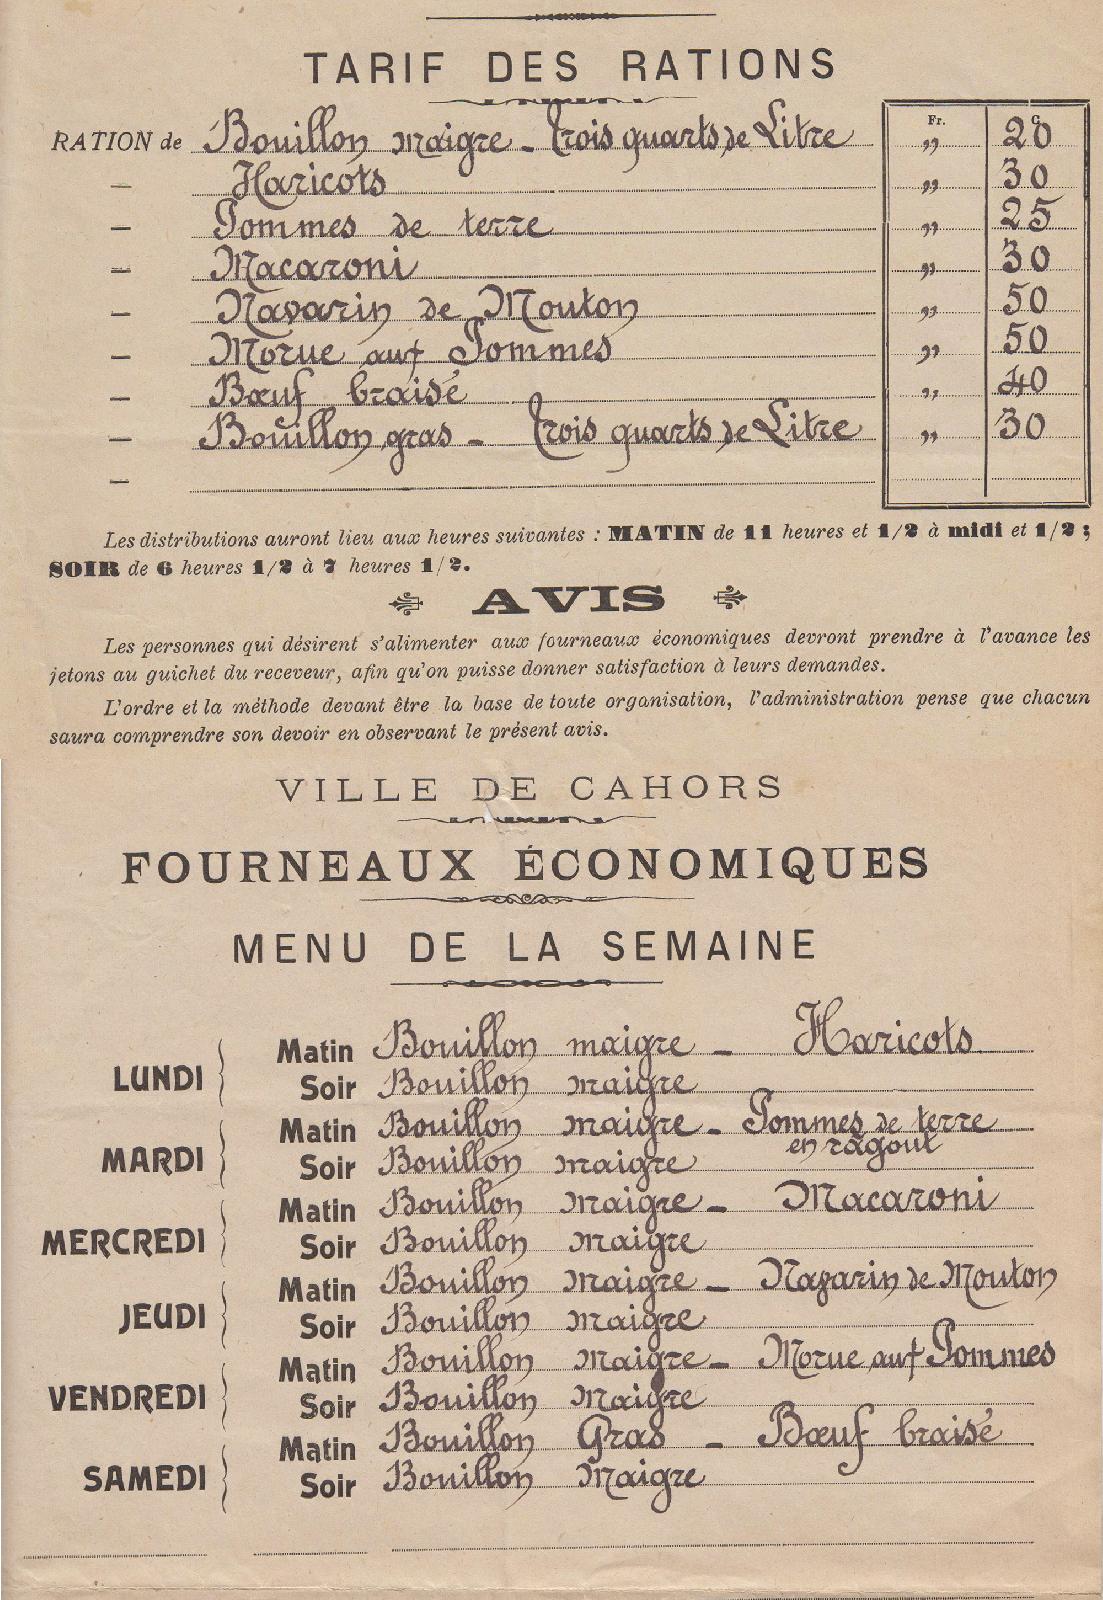 TARIF DES RATIONS
Fr. C.
RATION de Bouillon maigre - Trois quarts de Litre " 20
— Haricots " 30
— Pommes de terre " 25
— Macaroni " 30
— Navarin de Mouton " 50
— Morue aux Pommes " 50
— Bœuf braisé " 40
— Bouillon gras - Trois quarts de Litre " 30
—
Les distributions auront lieu aux heures suivantes : MATIN de 11 heures et 1/2 à midi et 1/2 ;
SOIR de 6 heures 1/2 à 7 heures 1/2.
AVIS
Les personnes qui désirent s'alimenter aux fourneaux économiques devront prendre à l'avance les
jetons au guichet du receveur, afin qu'on puisse donner satisfaction à leurs demandes.
L'ordre et la méthode devant être la base de toute organisation, l'administration pense que chacun
saura comprendre son devoir en observant le présent avis.
VILLE DE CAHORS
FOURNEAUX ÉCONOMIQUES
MENU DE LA SEMAINE
LUNDI
Matin Bouillon maigre - Haricots
Soir Bouillon maigre
MARDI
Matin Bouillon maigre - Pommes de terre
en ragout
Soir Bouillon maigre
MERCREDI
Matin Bouillon maigre - Macaroni
Soir Bouillon maigre
JEUDI
Matin Bouillon maigre - Navarin de Mouton
Soir Bouillon maigre
VENDREDI
Matin Bouillon maigre - Morue aux Pommes
Soir Bouillon Maigre
SAMEDI
Matin Bouillon Gras - Bœuf braisé
Soir Bouillon Maigre